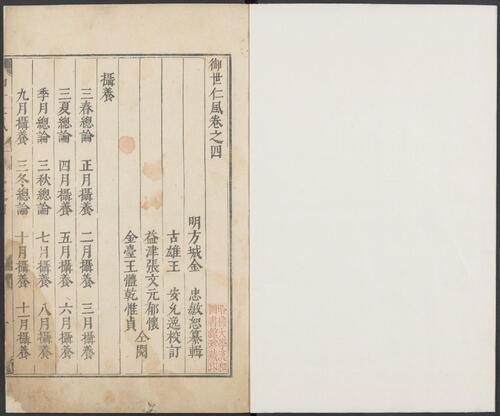 御世仁風卷之四
明方城金　忠敏恕纂輯
古雄王　安允逸校訂
益津張文元郁懷
金臺王體乾惟貞
仝閱
攝養
三春總論　正月攝養　二月攝養　三月攝養
三夏總論　四月攝養　五月攝養　六月攝養
季月總論　三秋總論　七月攝養　八月攝養
九月攝養　三冬總論　十月攝養　十一月攝養